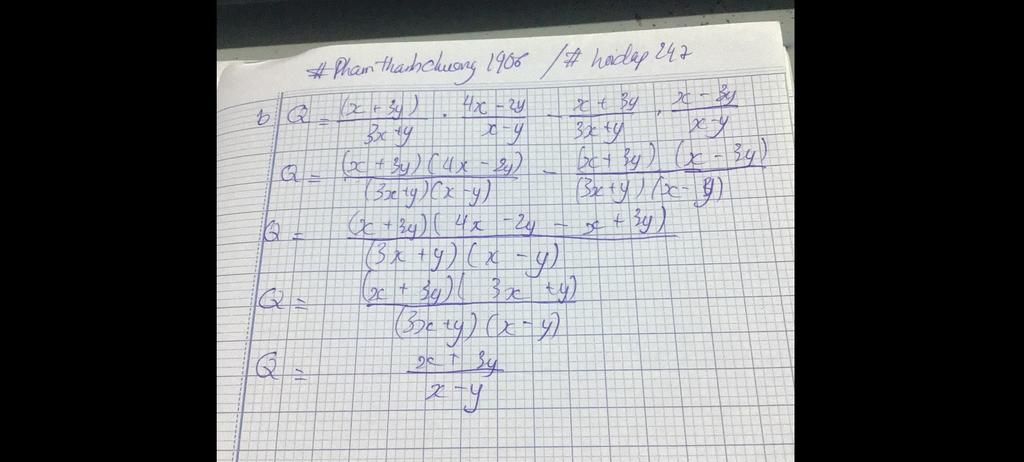 #Phamthanhchuong 1906 /# hoidap 247
b, Q = (x + 3y)/(3x+y) . (4x - 2y)/(x-y) - (x + 3y)/(3x+y) . (x - 3y)/(x-y)
Q = (x + 3y)(4x - 2y)/(3x+y)(x-y) - (x+3y) (x - 3y)/(3x+y) (x-y)
Q = (x + 3y)(4x - 2y - x + 3y)/(3x + y)(x - y)
Q = (x + 3y)(3x + y)/(3x+y)(x-y)
Q = x + 3y/x - y